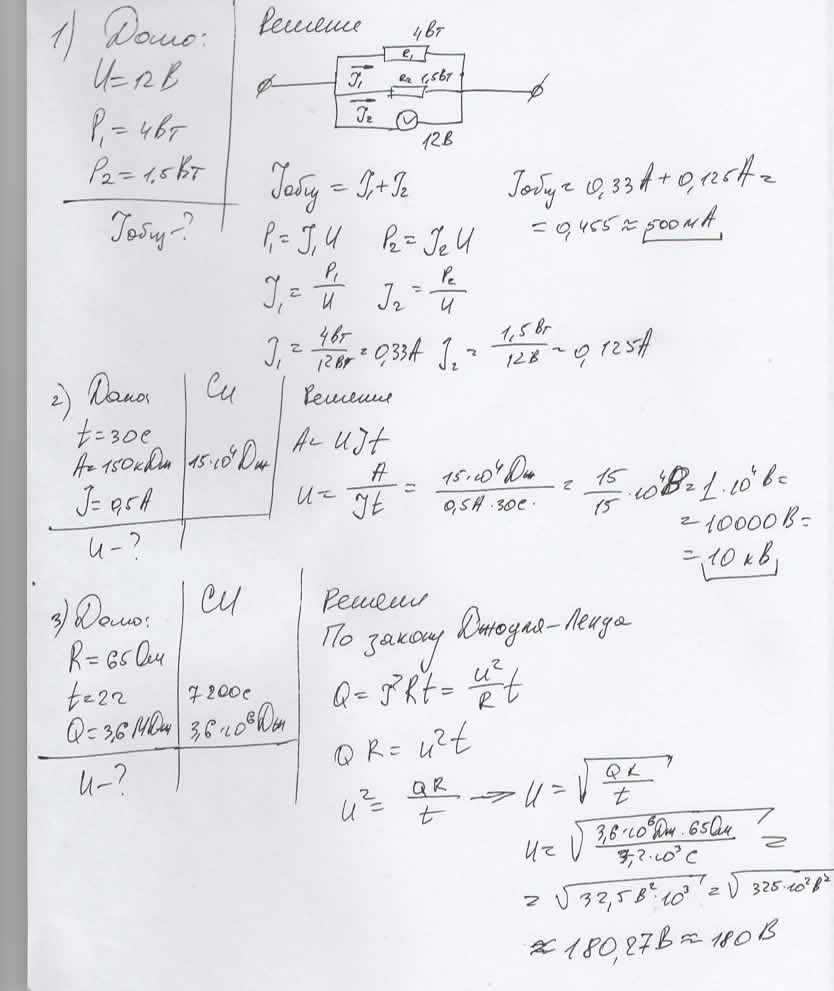 1) Дано:
U=12В
P₁=4Вт
P₂=1,5Вт
Iобщ-?
Решение
4Вт
R₁
I₁
R₂ 1,5Вт
I₂
V
12В
Iобщ = I₁+I₂
P₁=I₁U P₂=I₂U
I₁ = P₁/U I₂ = P₂/U
I₁ = 4Вт/12Вт = 0,33А I₂ = 1,5Вт/12В = 0,125А
Iобщ = 0,33А + 0,125А =
= 0,455 ≈ 500мА
2) Дано:
t=30с
A=150кДж
I=0,5А
U-?
Си
15·10⁴Дж
Решение
A=UIt
U = A/It = 15·10⁴Дж/0,5А·30с. = 15/15·10⁴В = 1·10⁴В=
= 10000В=
= 10кВ
3) Дано:
R=65Ом
t=2ч
Q=3,6МДж
U-?
СИ
7200с
3,6·10⁶Дж
Решение
По закону Джоуля-Ленца
Q = I²Rt = U²/R t
QR = U²t
U² = QR/t → U = √QR/t
U = √3,6·10⁶Дж·65Ом/7,2·10³С =
= √32,5В²·10³ = √325·10²В²
≈ 180,27В ≈ 180В